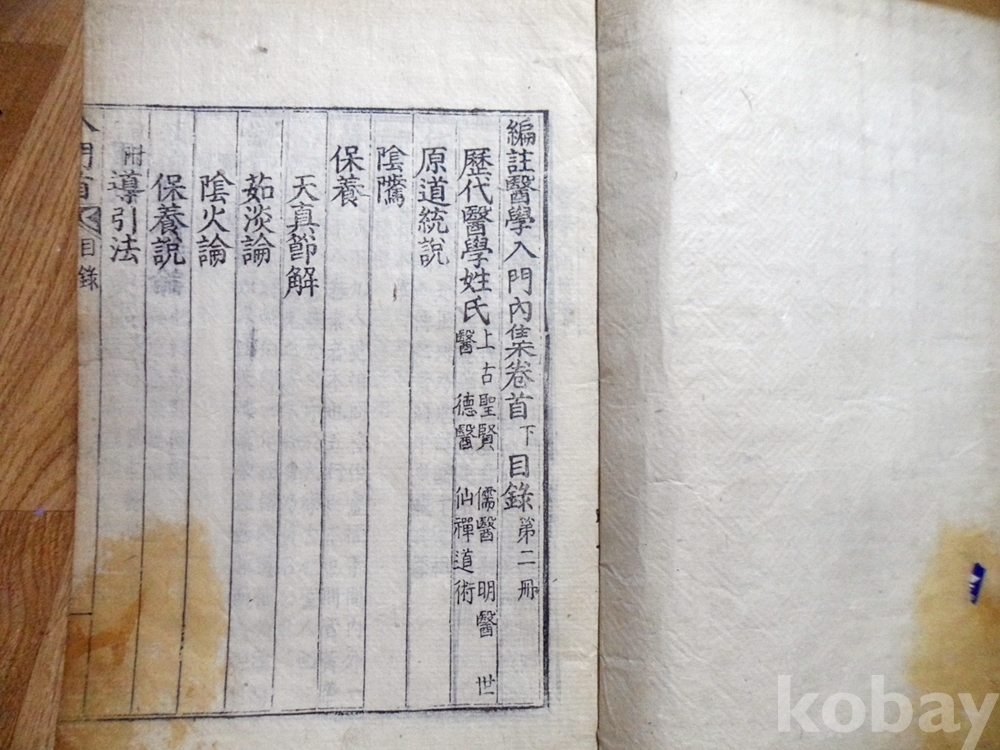 編註醫學入門內集卷首下目錄第二冊
歷代醫學姓氏上古聖賢 儒醫 明醫 世醫 德醫 仙禪道術
原道統說
陰騭
保養
天真節解
茹淡論
陰火論
保養說
附導引法
入門首 目錄
一
kobay